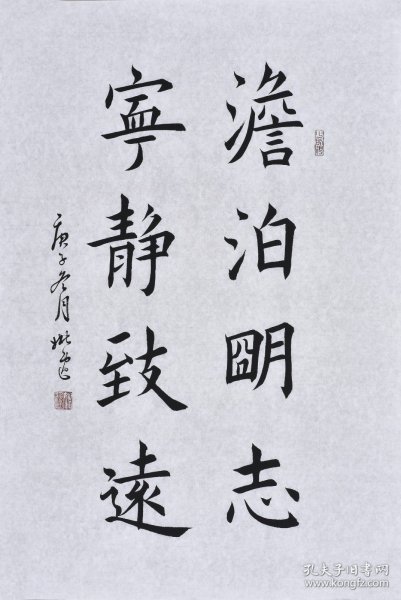 澹泊明志
寧靜致遠
庚子冬月
孔夫子旧书网
www.kongfz.com